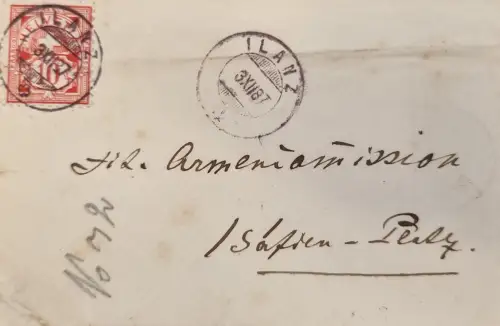 ILANZ
3XII87
10
ILANZ
3XII87
Tit. Armencommission
Safien-Platz.
No 72